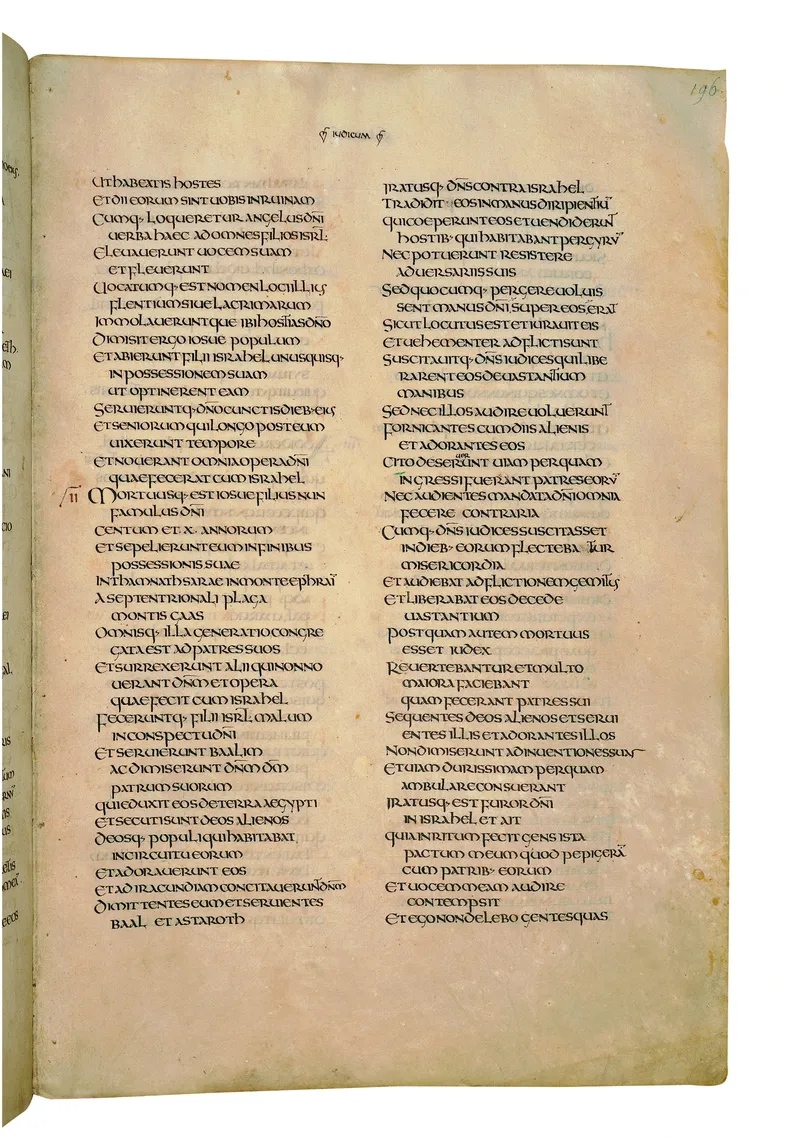 196.
IUDICUM
UT HABEATIS HOSTES
ET DII EORUM SINT UOBIS IN RUINAM
CUMQ· LOQUERETUR ANGELUS DN̄I
UERBA HAEC AD OMNES FILIOS ISRL̄·
ELEUAUERUNT UOCEM SUAM
ET FLEUERUNT
UOCATUMQ· EST NOMEN LOCI ILLIUS
FLENTIUM SIUE LACRIMARUM
IMMOLAUERUNTQUE IBI HOSTIAS DN̄O
DIMISIT ERGO IOSUE POPULUM
ET ABIERUNT FILII ISRAHEL UNUSQUISQ·
IN POSSESSIONEM SUAM
UT OPTINERENT EAM
SERUIERUNTQ· DN̄O CUNCTIS DIEB· EIUS
ET SENIORUM QUI LONGO POST EUM
UIXERUNT TEMPORE
ET NOUERANT OMNIA OPERA DN̄I
QUAE FECERAT CUM ISRAHEL
II MORTUUSQ· EST IOSUE FILIUS NUN
FAMULUS DN̄I
CENTUM ET ·X· ANNORUM
ET SEPELIERUNT EUM IN FINIBUS
POSSESSIONIS SUAE
IN THAMNATHSARAE IN MONTE EPHRAĪ
A SEPTENTRIONALI PLAGA
MONTIS GAAS
OMNISQ· ILLA GENERATIO CONGRE
GATA EST AD PATRES SUOS
ET SURREXERUNT ALII QUI NON NO
UERANT DN̄M ET OPERA
QUAE FECIT CUM ISRAHEL
FECERUNTQ· FILII ISRL̄· MALUM
IN CONSPECTU DN̄I
ET SERUIERUNT BAALIM
AC DIMISERUNT DN̄M DM̄
PATRUM SUORUM
QUI EDUXIT EOS DE TERRA AEGYPTI
ET SECUTI SUNT DEOS ALIENOS
DEOSQ· POPULI QUI HABITABAT
IN CIRCUITU EORUM
ET ADORAUERUNT EOS
ET AD IRACUNDIAM CONCITAUERUNT DN̄M
DIMITTENTES EUM ET SERUIENTES
BAAL ET ASTAROTH
IRATUSQ· DN̄S CONTRA ISRAHEL
TRADIDIT EOS IN MANUS DIRIPIENTIŪ
QUI COEPERUNT EOS ET UENDIDERUNT
HOSTIB· QUI HABITABANT PER GYRŪ
NEC POTUERUNT RESISTERE
ADUERSARIIS SUIS
SED QUOCUMQ· PERGERE UOLUIS
SENT MANUS DN̄I SUPER EOS ERAT
SICUT LOCUTUS EST ET IURAUIT EIS
ET UEHEMENTER ADFLICTI SUNT
SUSCITAUITQ· DN̄S IUDICES QUI LIBE
RARENT EOS DE UASTANTIUM
MANIBUS
SED NEC ILLOS AUDIRE UOLUERUNT
FORNICANTES CUM DIIS ALIENIS
ET ADORANTES EOS
CITO DESERUERUNT UIAM PER QUAM
INGRESSI FUERANT PATRES EORŪ
NEC AUDIENTES MANDATA DN̄I OMNIA
FECERE CONTRARIA
CUMQ· DN̄S IUDICES SUSCITASSET
IN DIEB· EORUM FLECTEBATUR
MISERICORDIA
ET AUDIEBAT ADFLICTIONEM GEMITUS
ET LIBERABAT EOS DE CEDE
UASTANTIUM
POSTQUAM AUTEM MORTUUS
ESSET IUDEX
REUERTEBANTUR ET MULTO
MAIORA FACIEBANT
QUAM FECERANT PATRES SUI
SEQUENTES DEOS ALIENOS ET SERUI
ENTES ILLIS ET ADORANTES ILLOS
NON DIMISERUNT ADINUENTIONES SUAS
ET UIAM DURISSIMAM PER QUAM
AMBULARE CONSUERANT
IRATUSQ· EST FUROR DN̄I
IN ISRAHEL ET AIT
QUIA INRITUM FECIT GENS ISTA
PACTUM MEUM QUOD PEPIGERĀ
CUM PATRIB· EORUM
ET UOCEM MEAM AUDIRE
CONTEMPSIT
ET EGO NON DELEBO GENTES QUAS